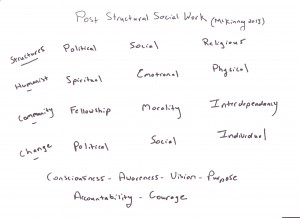 Post Structural Social Work (McKinny 2013)
Structures Political Social Religious
Humanist Spiritual Emotional Physical
Community Fellowship Morality Interdependency
Change Political Social Individual
Consciousness - Awareness - Vision - Purpose
Accountability - Courage